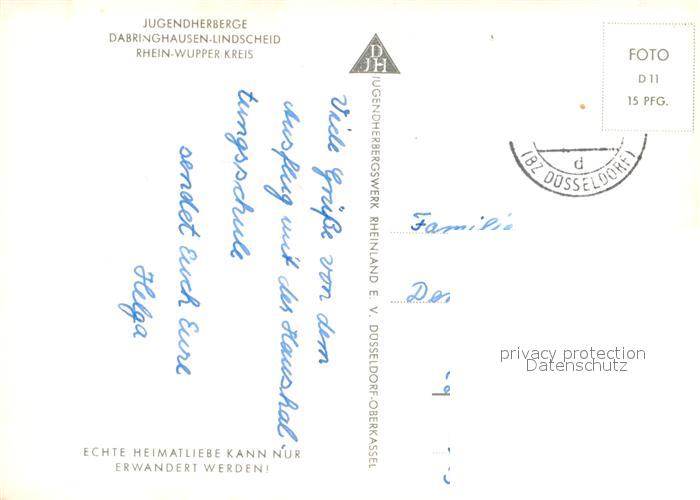 JUGENDHERBERGE
DABRINGHAUSEN-LINDSCHEID
RHEIN-WUPPER-KREIS
Viele Grüße von dem
Ausflug mit der Haushal-
tungsschule
sendet Euch Eure
Helga
ECHTE HEIMATLIEBE KANN NUR
ERWANDERT WERDEN!
D
JH
JUGENDHERBERGSWERK RHEINLAND E. V. DÜSSELDORF-OBERKASSEL
FOTO
D 11
15 PFG.
d
(BZ DÜSSELDORF)
Familie
privacy protection
Datenschutz